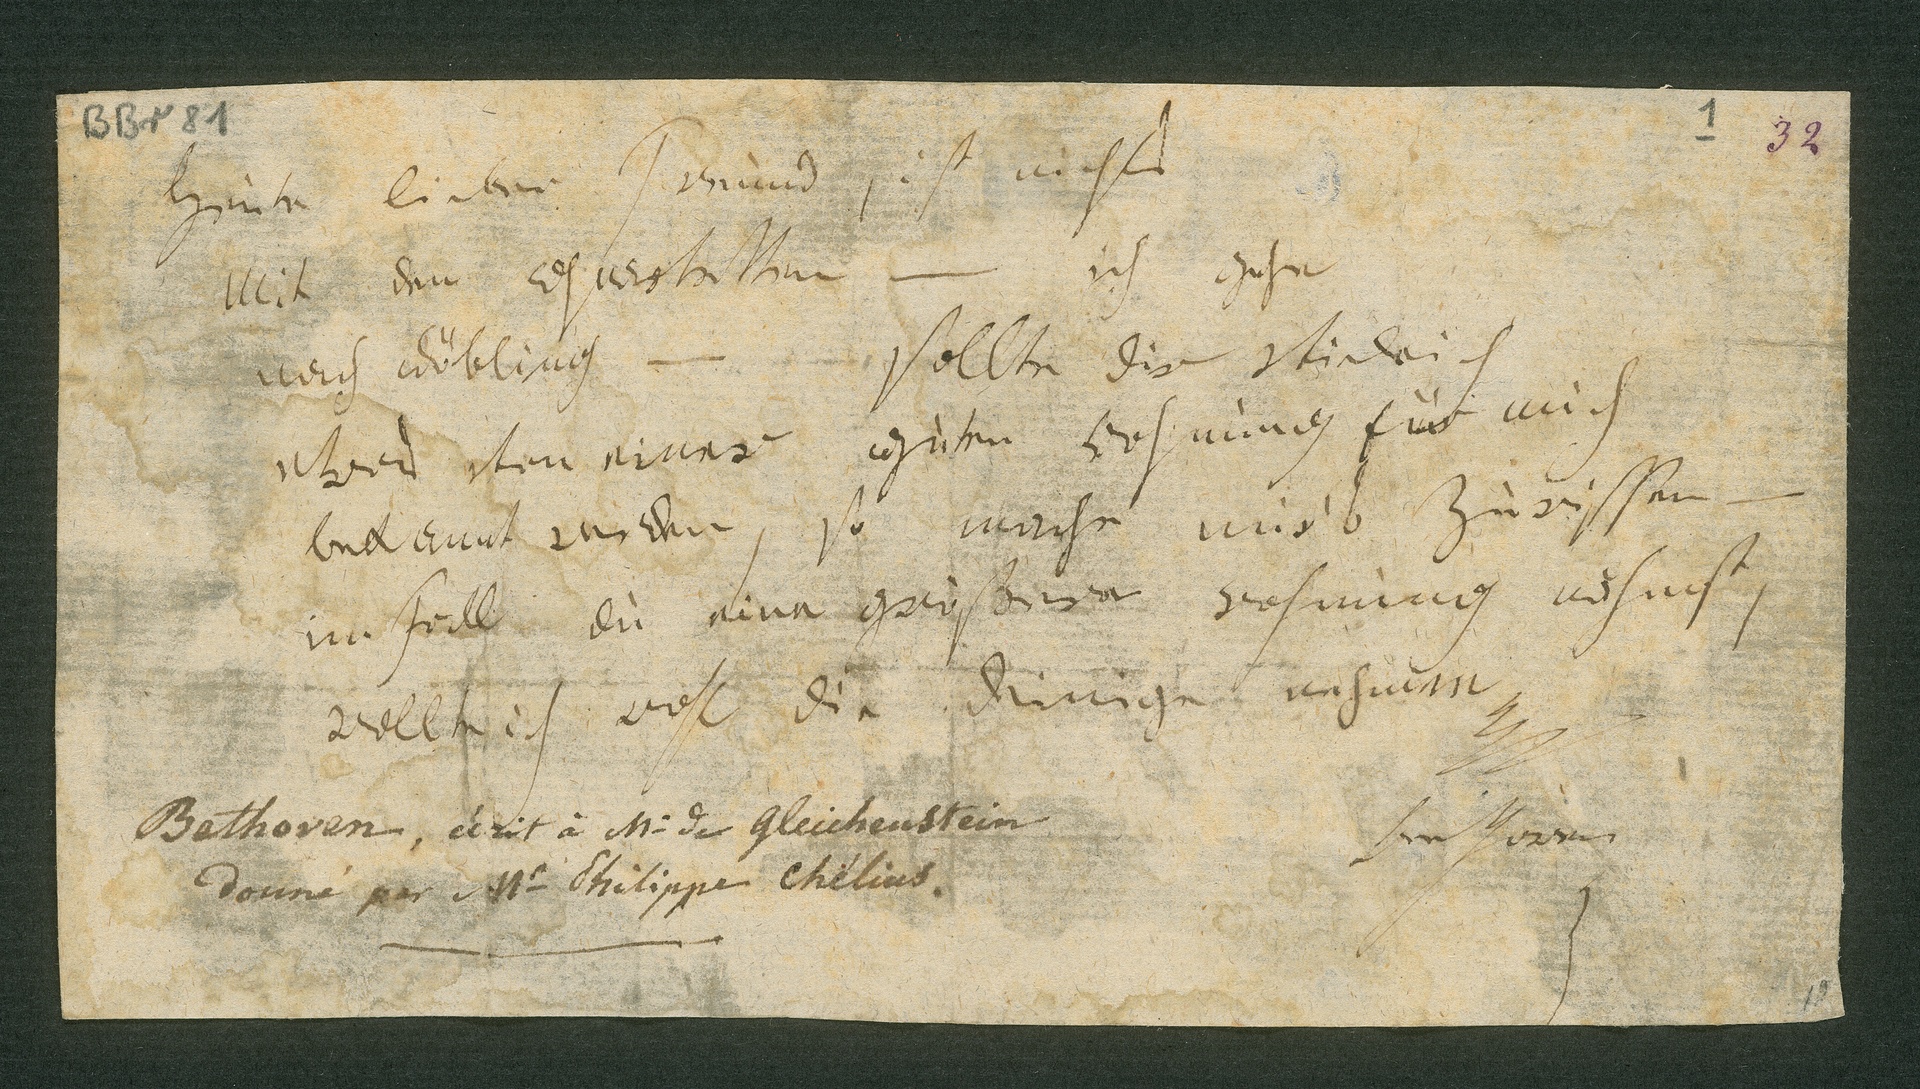 BBr 81
1
32
Heute lieber Freund, ist nichts
mit den — ich gehe
nach döbling — sollte dir vieleich
etwas von einer guten wohnung für mich
bekannt werden, so mache mir's zuwissen —
im fall du eine größere wohnung nehmst,
wollte ich wohl die deinige nehmen
Beethowen, écrit à Mr de Gleichenstein
donné par Mr Philippe Chélius.